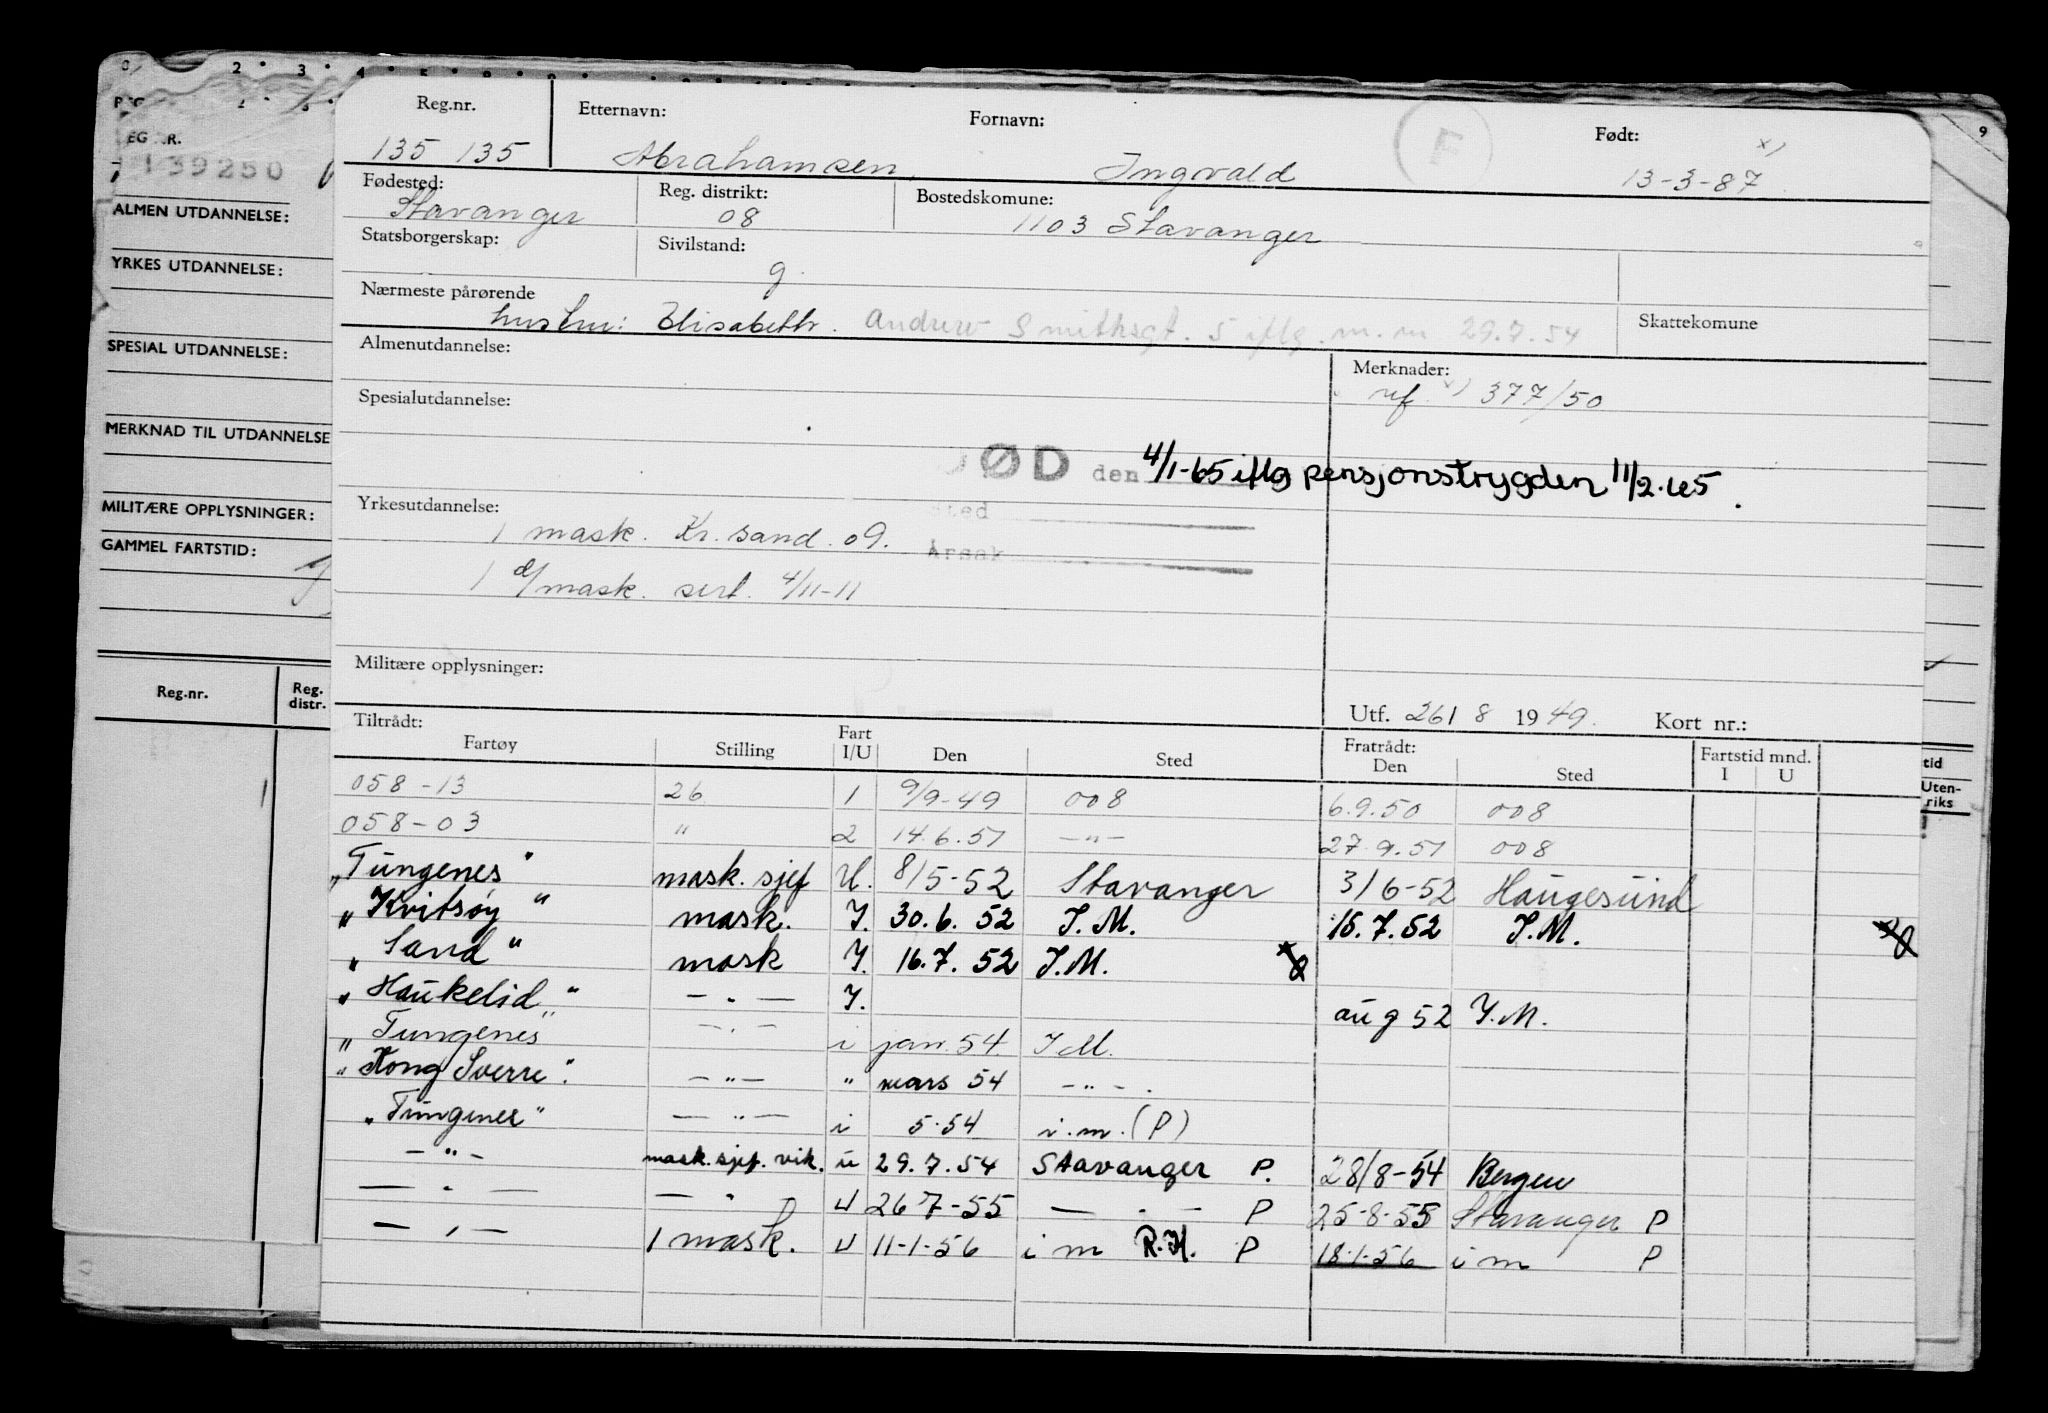 Reg.nr. Etternavn: Fornavn: F Født: x)
135 135 Abrahamsen, Ingvald 13-3-87
Fødested: Reg. distrikt: Bostedskomune:
Stavanger 08 1103 Stavanger
Statsborgerskap: Sivilstand:
g.
Nærmeste pårørende Skattekomune
hustru: Elisabeth. Andrew Smithsgt. 5 iflg. m.m 29.7.54
Almenutdannelse: Merknader:
ref. x) 377/50
Spesialutdannelse:
ØD den 4/1-65 iflg pensjonstrygden 11/2.65.
Sted
Årsak
Yrkesutdannelse:
1 mask. Kr.sand. 09.
1 d/mask. sert. 4/11-11
Militære opplysninger:
Utf. 26/ 8 1949. Kort nr.:
Tiltrådt: Fratrådt: Fartstid mnd.
Fartøy Stilling Fart I/U Den Sted Den Sted I U
058-13 26 1 9/9-49 008 6.9.50 008
058-03 " 2 14.6.51 -"- 27.9.51 008
"Tungenes" mask. sjef U. 8/5-52 Stavanger 3/6-52 Haugesund
"Kvitsøy" mask. I. 30.6.52 I.M. 15.7.52 I.M.
"Sand" mask I. 16.7.52 I.M.
"Haukelid" -"- I. aug 52 I.M.
"Tungenes" -"- i jan. 54. I M.
"Kong Sverre". -"- " mars 54 -"-.
"Tungenes" -"- i 5.54 i.m. (P)
-"- mask.sjef. vik. u 29.7.54 Stavanger P. 28/8-54 Bergen
-"- -"- U 26 7-55 -"- P 25-8-55 Stavanger P
-"- 1 mask. U 11-1-56 i m R.H. P 18-1-56 i m P
REG NR.
139250
ALMEN UTDANNELSE:
YRKES UTDANNELSE:
SPESIAL UTDANNELSE:
MERKNAD TIL UTDANNELSE
MILITÆRE OPPLYSNINGER:
GAMMEL FARTSTID:
Reg.nr. Reg. distr.
1
9
tid
Uten-
riks